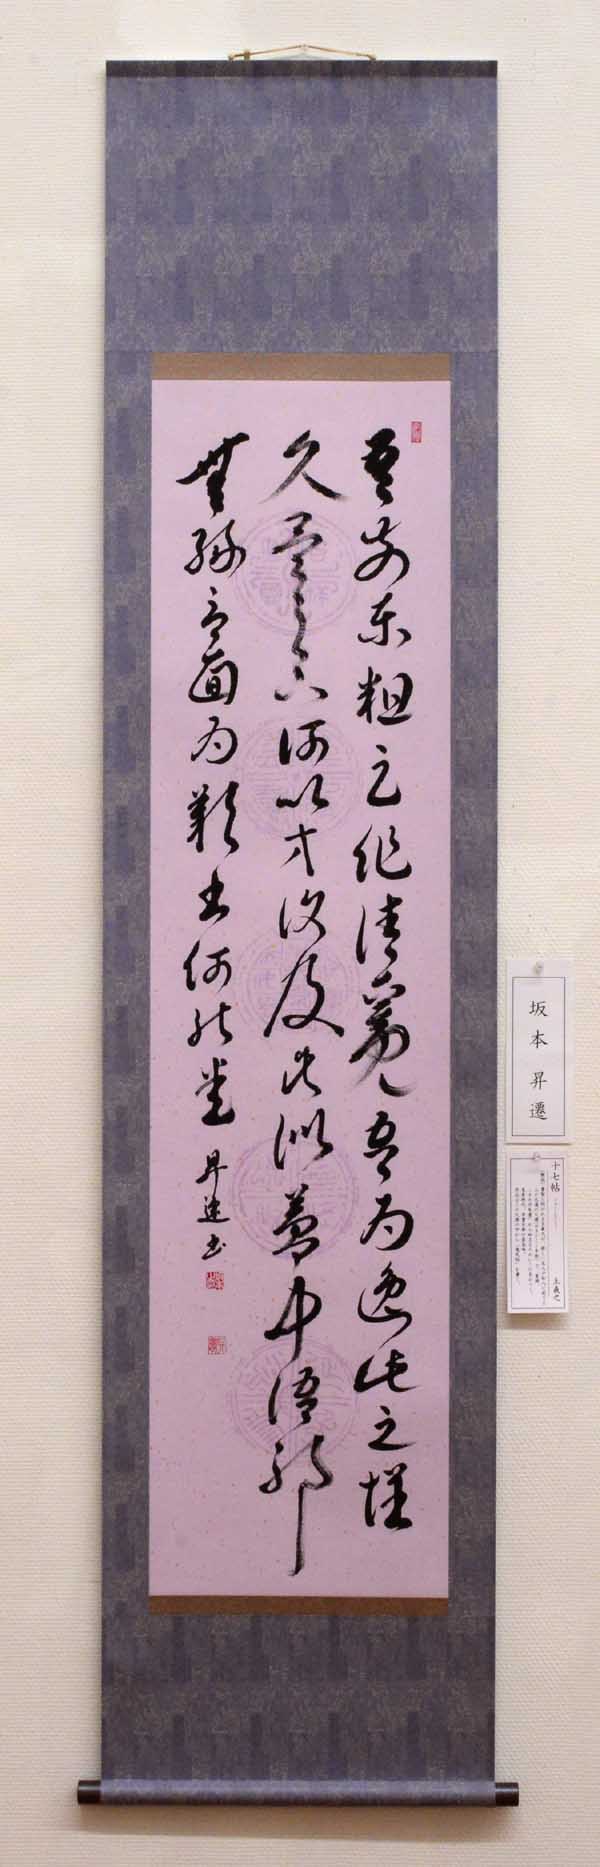 吾前東粗足作佳觀吾為逸民之懷
久矣足下何以方復及此似夢中語耶
無緣言面為歎書何能悉
昇遷書
坂本 昇遷
十七帖
王羲之